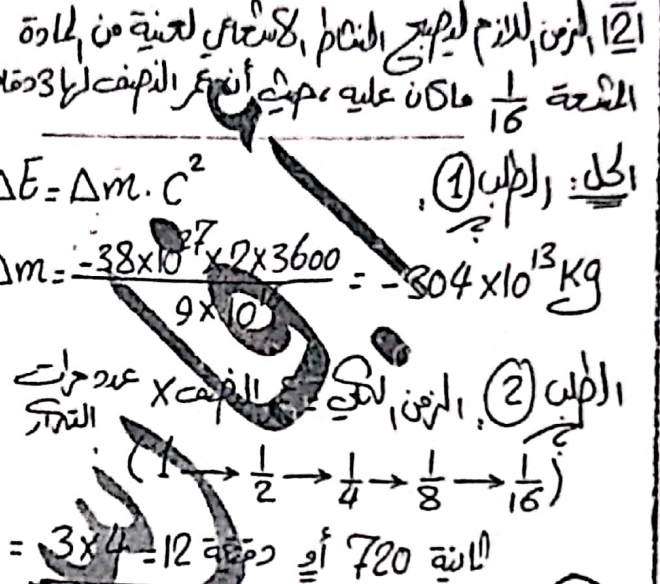 [2] الزمن اللازم ليصبح النشاط الإشعاعي لعينة من المادة
المشعة 1/16 ماكان عليه، حيث أن عمر النصف لها 3 دقا
الحل: الطلب ①:
ΔE = Δm . C²
Δm = (-38×10²⁷ × 2 × 3600) / (9 × 10) = -304 × 10¹³ Kg
الطلب ②: الزمن الكلي = النصف × عدد مرات التكرار
(1 → 1/2 → 1/4 → 1/8 → 1/16)
= 3×4 = 12 دقيقة أو 720 ثانية